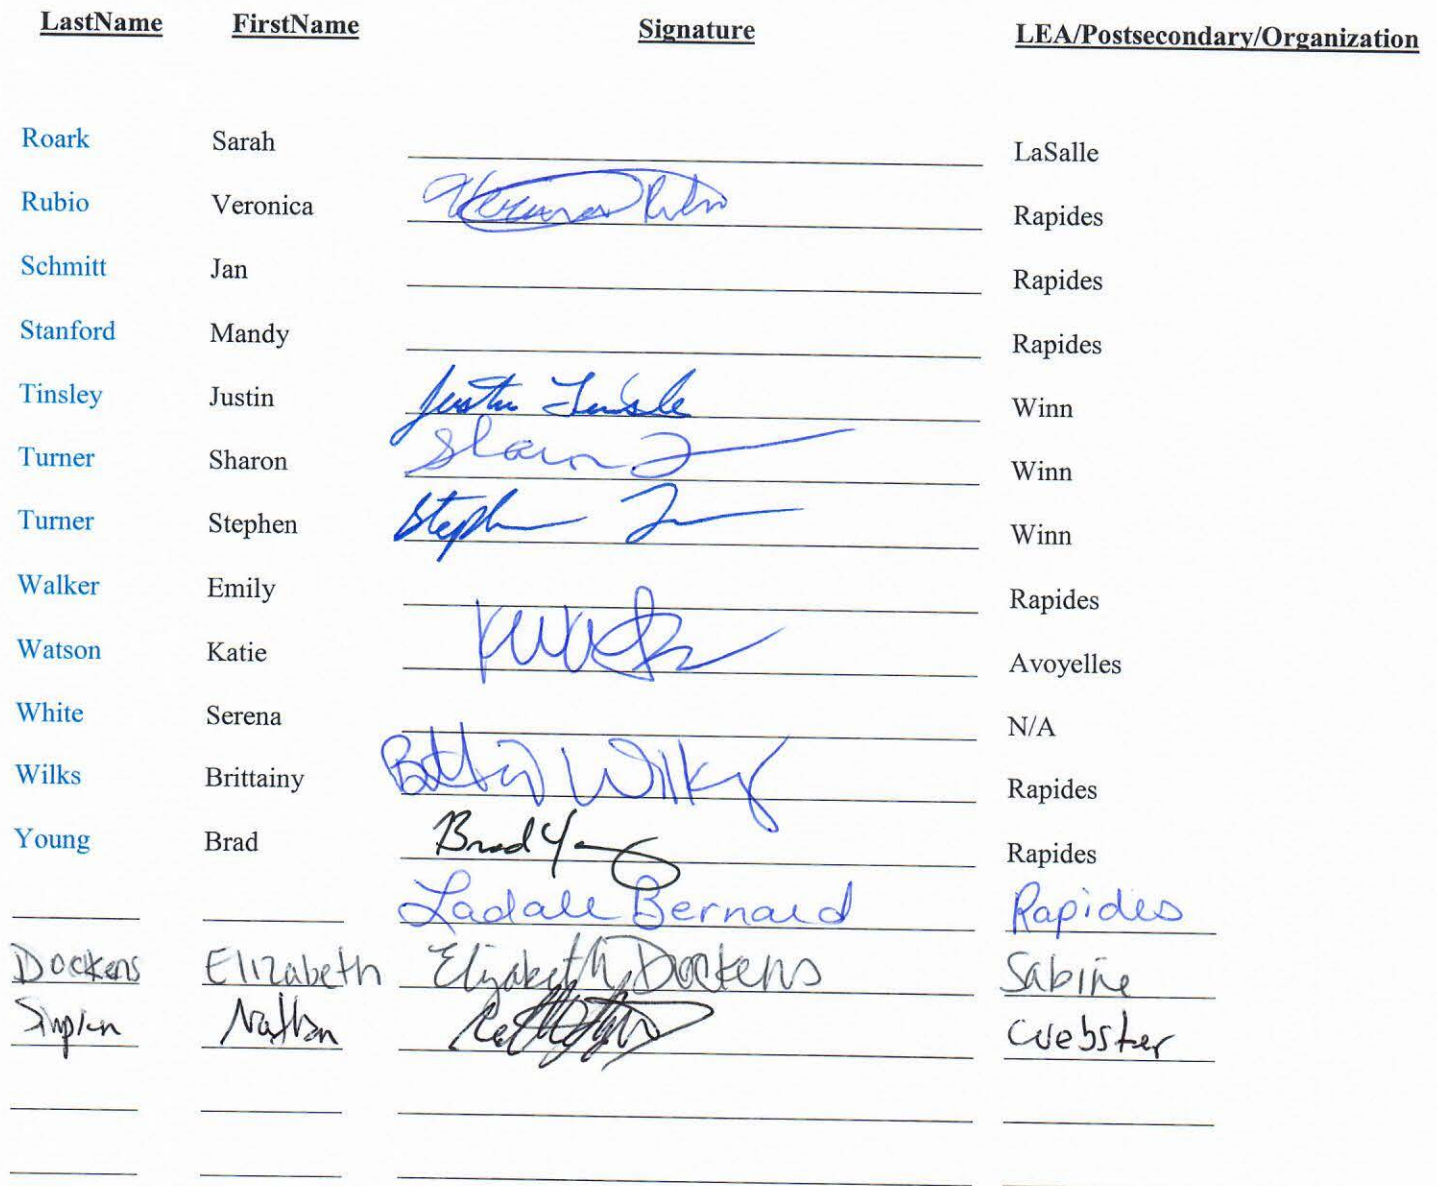 LastName FirstName Signature LEA/Postsecondary/Organization
Roark Sarah LaSalle
Rubio Veronica Veronica Rubio Rapides
Schmitt Jan Rapides
Stanford Mandy Rapides
Tinsley Justin Justin Winn
Turner Sharon Sharon Winn
Turner Stephen Stephen Winn
Walker Emily Rapides
Watson Katie Avoyelles
White Serena N/A
Wilks Brittainy Wilks Rapides
Young Brad Brad Rapides
Bernard Rapides
Dockens Elizabeth Elizabeth Dockens Sabine
Nathan Webster